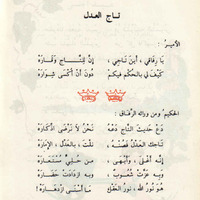 تاج العدل
الأمير :
يا رفاقي ، أين تاجي ، إن للتاج وقاره
كيف لي بالحكم فيكم دون أن أكسى شواره
الحكيم ومن وراءه الرفاق :
دع حديث التاج دعه نحن لا نرضى ادكاره
تاجك العدل فصنه ، نلت ، بالعدل ، الإماره
إنه أغلى ، وأبهى ، من حلي مستعاره
وبه عزت شعوب وبه ازدادت حضاره
هو نور الله ، نور العقل ما أسنى ازدهاره !